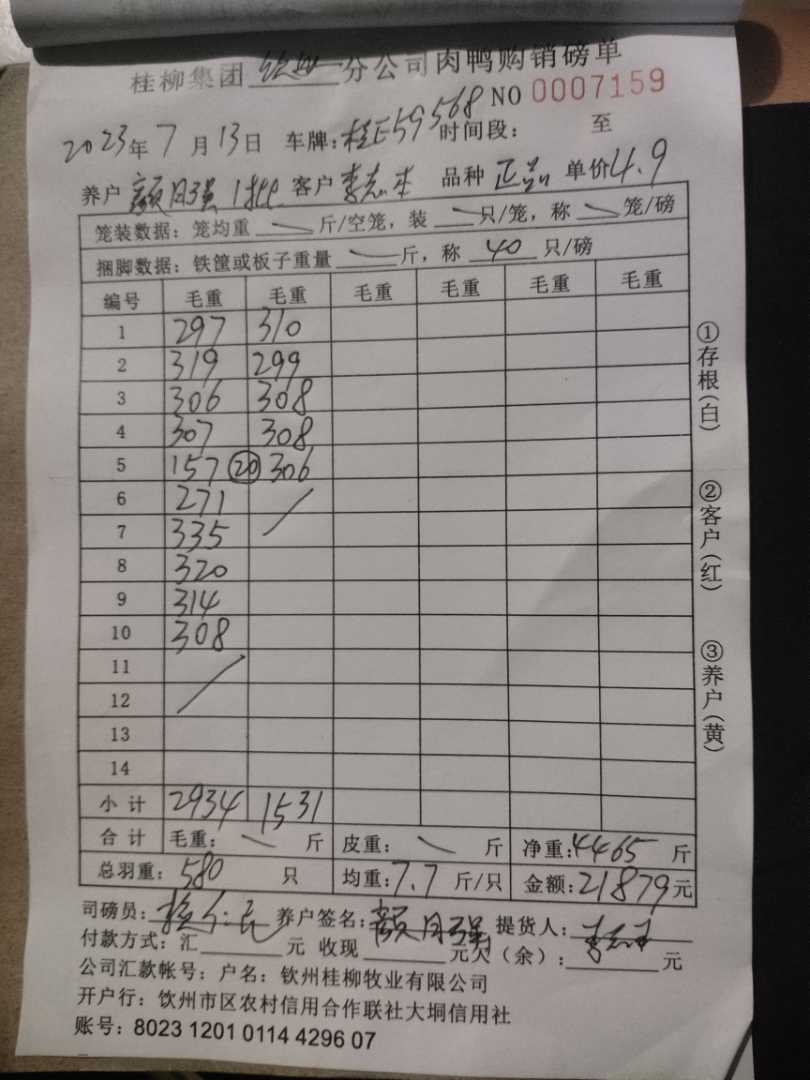 桂柳集团 钦州 分公司肉鸭购销磅单
NO 0007159
2023年7月13日 车牌:桂E59568 时间段: 至
养户 颜月强 1批 客户 李志本 品种 正品 单价4.9
笼装数据: 笼均重 斤/空笼, 装 只/笼, 称 笼/磅
捆脚数据: 铁筐或板子重量 斤, 称 40 只/磅
编号 毛重 毛重 毛重 毛重 毛重 毛重
1 297 310
2 319 299
3 306 308
4 307 308
5 157 20 306
6 271
7 335
8 320
9 314
10 308
11
12
13
14
小计 2934 1531
合计 毛重: 斤 皮重: 斤 净重:4465 斤
总羽重: 580 只 均重:7.7 斤/只 金额:21879元
司磅员: 养户签名:颜月强 提货人:李志本
付款方式:汇 元 收现 元欠(余): 元
公司汇款帐号: 户名: 钦州桂柳牧业有限公司
开户行: 钦州市区农村信用合作联社大垌信用社
账号: 8023 1201 0114 4296 07
①存根(白)
②客户(红)
③养户(黄)